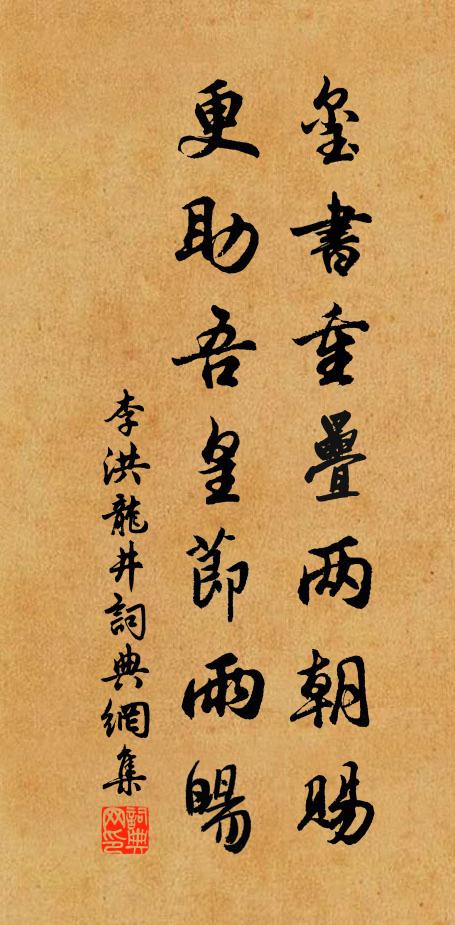 璽書重疊两朝賜
更助吾皇節雨暘
李洪龍井詞典網集
詞典
网印